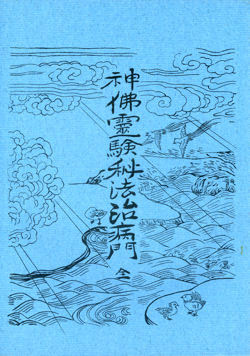 神佛靈験秘法治病門 全